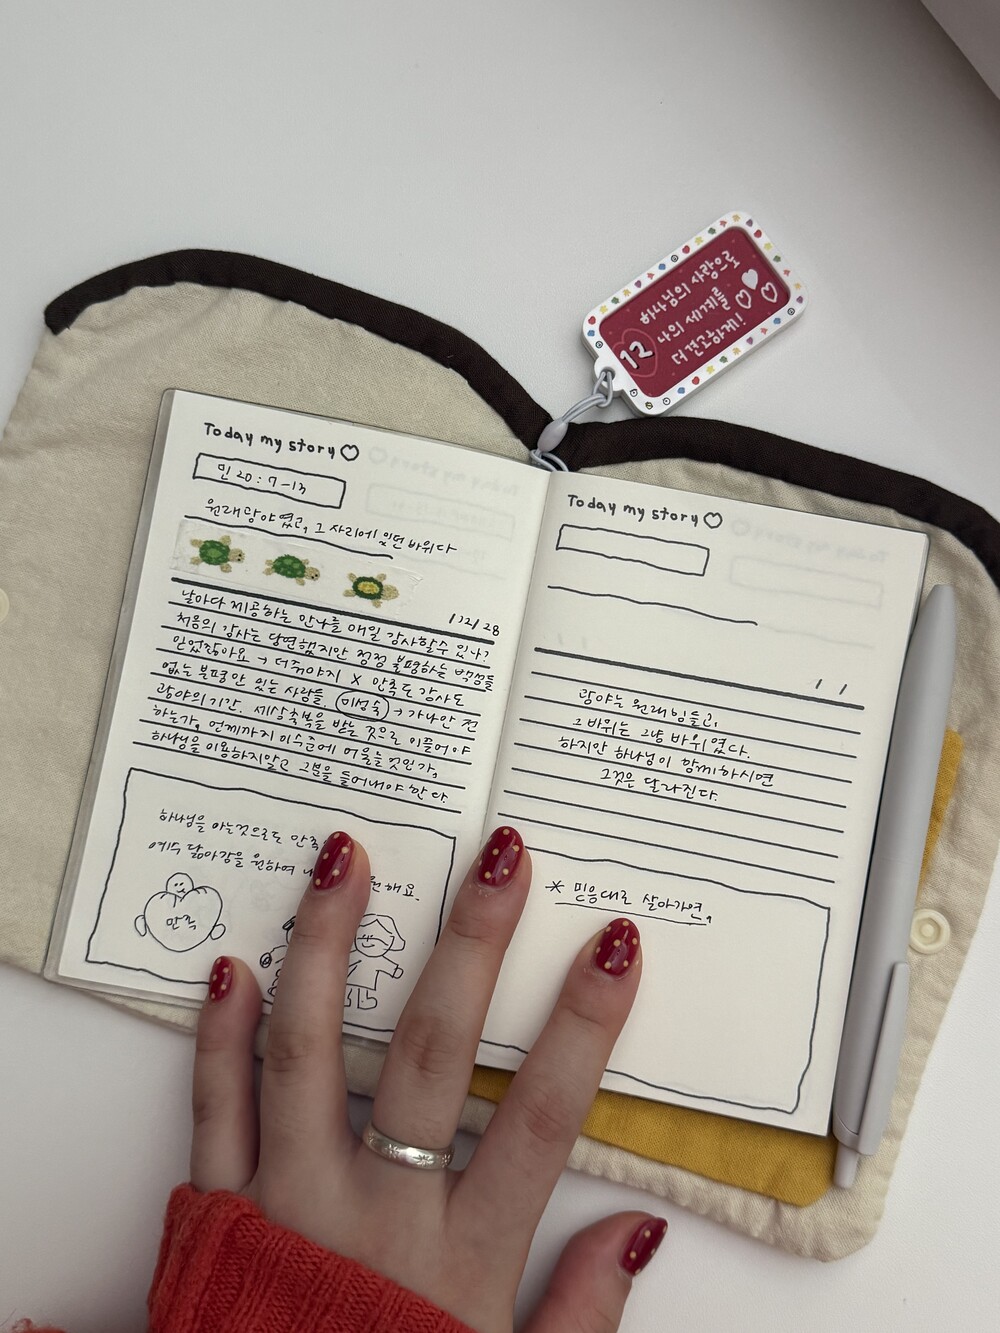 하나님의 사랑으로
나의 세계를
더 견고하게!
12
Today my story
민 20 : 7-13
원래 광야였고, 그 자리에 있던 바위다
12/28
날마다 제공하는 만나를 매일 감사할수 있나?
처음의 감사는 당연했지만 점점 불평하는 백성들
있잖아요 → 더줘야지 X 만족도 감사도
없는 불평만 있는 사람들. 미성숙 → 가나안 전
광야의 기간. 세상축복을 받는 것으로 이끌어야
하는가, 언제까지 이수준에 머물 것인가,
하나님을 이용하지말고 그분을 들어내야 한다.
하나님을 아는것으로도 만족
예수 닮아감을 원하며 원해요.
만족
Today my story
/ /
광야는 원래 힘들고,
그 바위는 그냥 바위였다.
하지만 하나님이 함께하시면
그것은 달라진다.
* 믿음대로 살아가면,